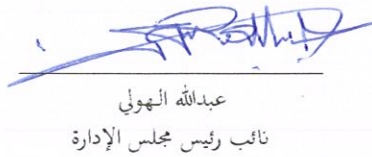 عبدالله الهولي
نائب رئيس مجلس الإدارة